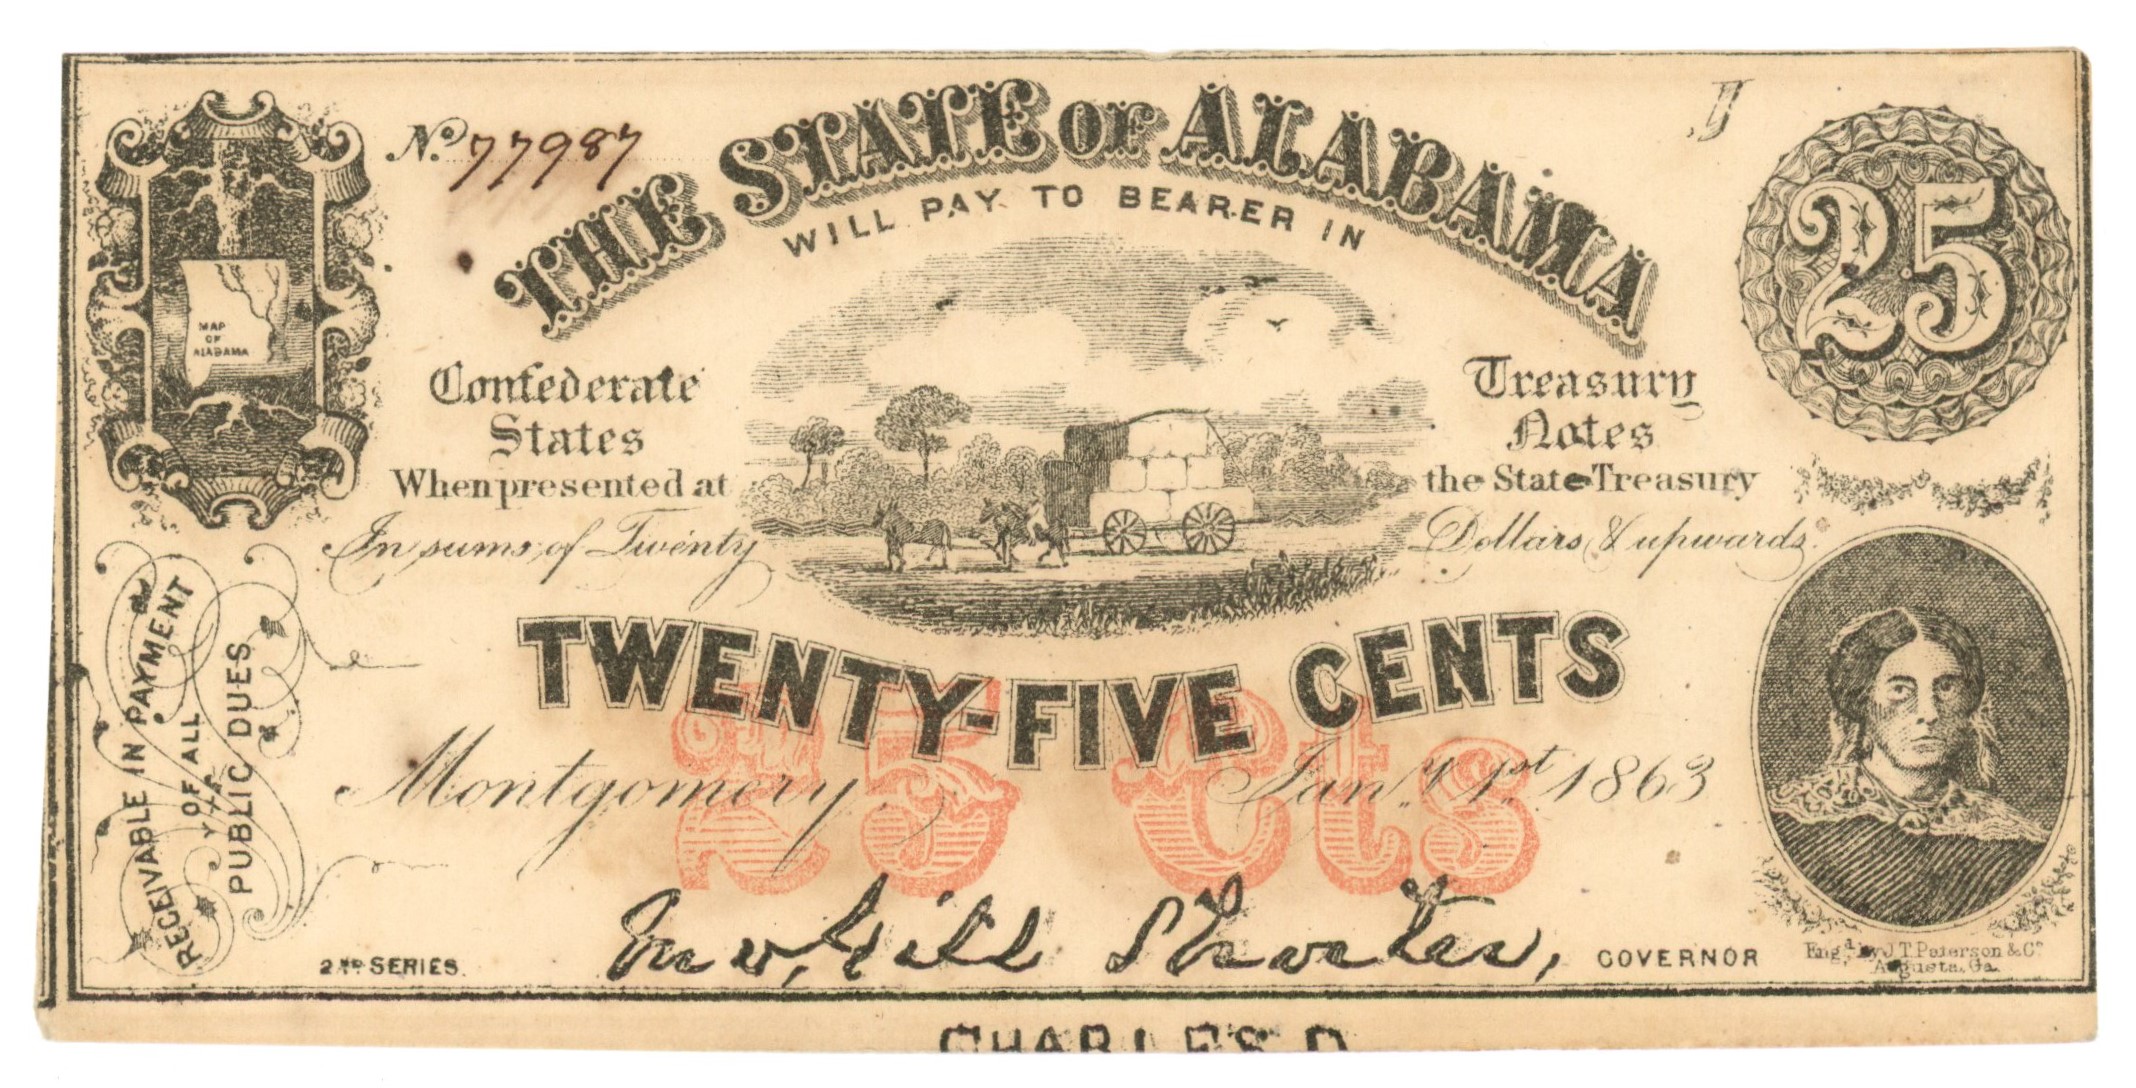 No. 77987
THE STATE OF ALABAMA
25
WILL PAY TO BEARER IN
MAP
OF
ALABAMA
Confederate
States
Treasury
Notes
When presented at
the State Treasury
In sums of Twenty
Dollars & upwards
TWENTY-FIVE CENTS
25 Cts
Montgomery,
Jany. 1st. 1863
RECEIVABLE IN PAYMENT
OF ALL
PUBLIC DUES
2ND SERIES.
Jno, Gill Shorter,
GOVERNOR
Engd. by J.T. Paterson & Co
Augusta, Ga.
CHARLES D